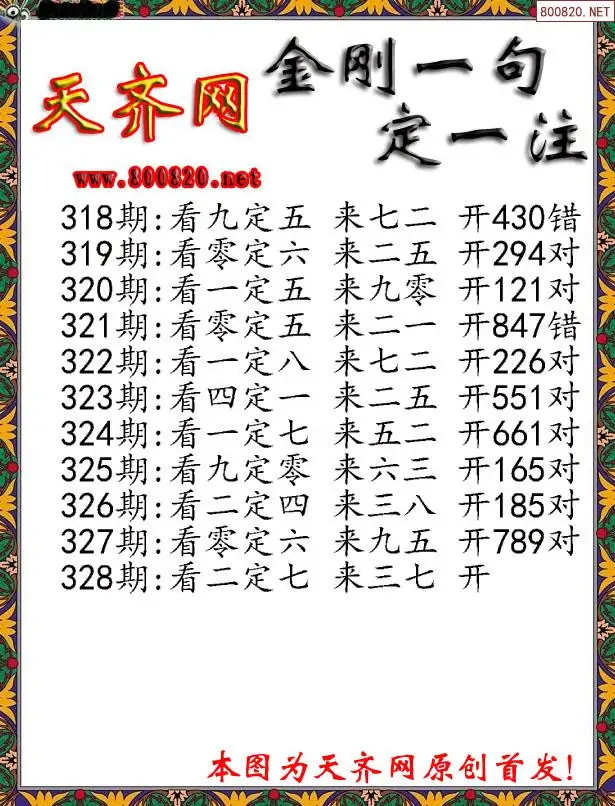 800820.NET
金刚一句
天齐网
定一注
www.800820.net
318期:看九定五 来七二 开430错
319期:看零定六 来二五 开294对
320期:看一定五 来九零 开121对
321期:看零定五 来二一 开847错
322期:看一定八 来七二 开226对
323期:看四定一 来二五 开551对
324期:看一定七 来五二 开661对
325期:看九定零 来六三 开165对
326期:看二定四 来三八 开185对
327期:看零定六 来九五 开789对
328期:看二定七 来三七 开
本图为天齐网原创首发!